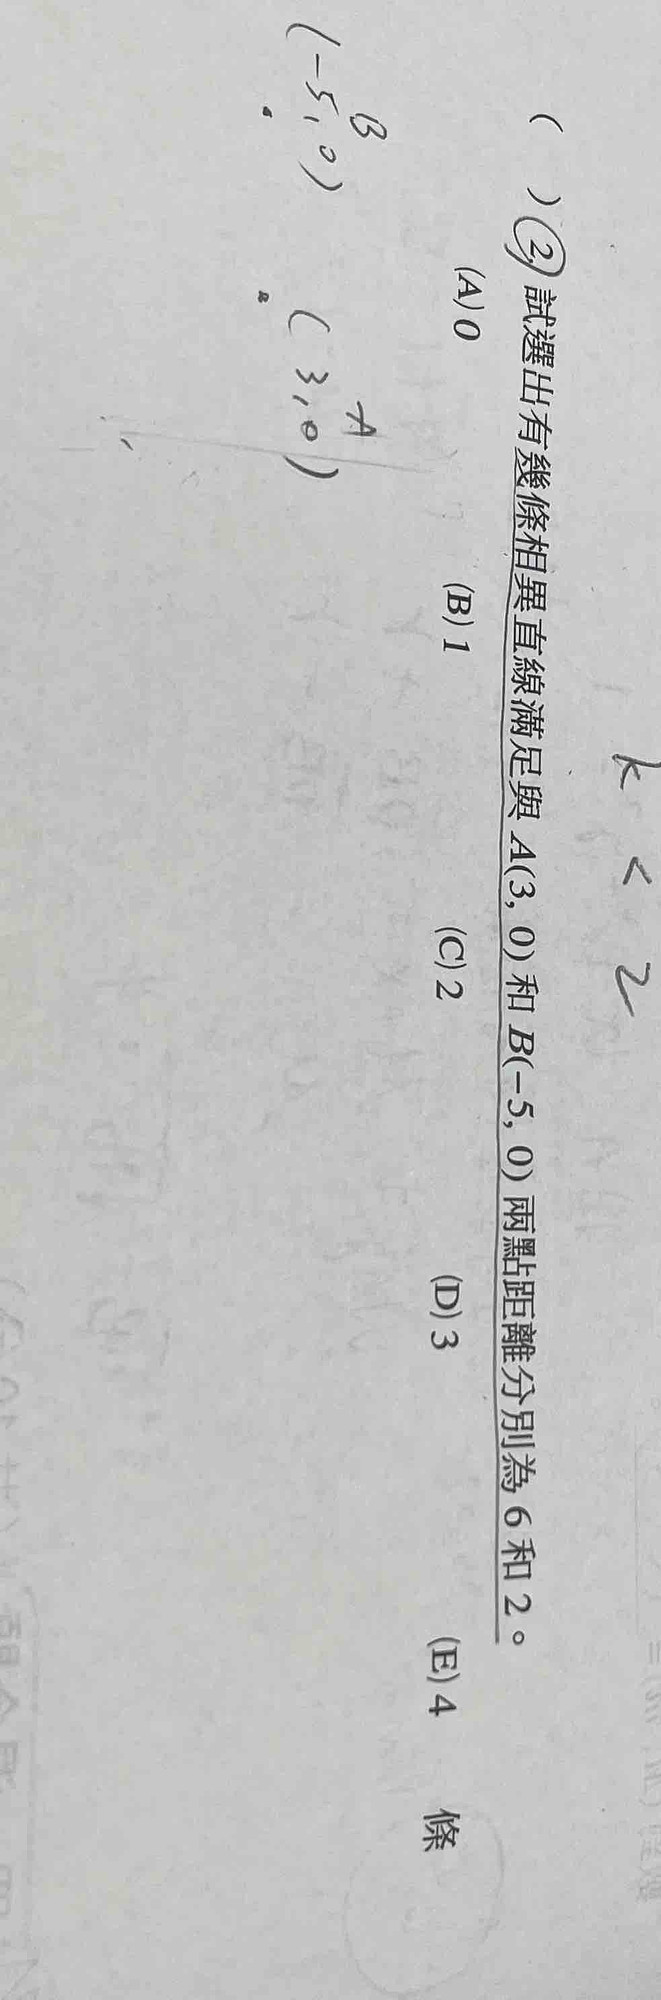 k < 2
( ) 2. 試選出有幾條相異直線滿足與 A(3, 0) 和 B(−5, 0) 兩點距離分別為 6 和 2。
(A) 0 (B) 1 (C) 2 (D) 3 (E) 4 條
B A
(−5, 0) (3, 0)